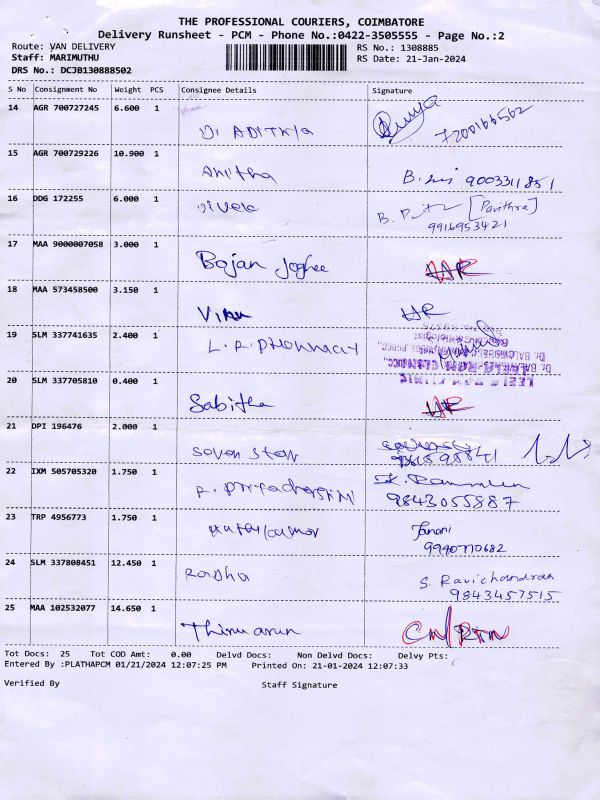 THE PROFESSIONAL COURIERS, COIMBATORE
Delivery Runsheet - PCM - Phone No.:0422-3505555 - Page No.:2
Route: VAN DELIVERY RS No.: 1308885
Staff: MARIMUTHU RS Date: 21-Jan-2024
DRS No.: DCJB130888502
S No Consignment No Weight PCS Consignee Details Signature
14 AGR 700727245 6.600 1
Di ADITHYA 7200166562
15 AGR 700729226 10.900 1
Anitha 9003311851
16 DDG 172255 6.000 1
Vivek B. [Pavithra]
9916953421
17 MAA 9000007058 3.000 1
Bojan Joghee
18 MAA 573458500 3.150 1
19 SLM 337741635 2.400 1
L.R. PHARMACY
20 SLM 337705810 0.400 1
Sabitha
21 DPI 196476 2.000 1
22 IXM 505705320 1.750 1
9843055887
23 TRP 4956773 1.750 1
Janani
9940770682
24 SLM 337808451 12.450 1
Radha S. Ravichandran
9843457515
25 MAA 102532077 14.650 1
Tot Docs: 25 Tot COD Amt: 0.00 Delvd Docs: Non Delvd Docs: Delvy Pts:
Entered By :PLATHAPCM 01/21/2024 12:07:25 PM Printed On: 21-01-2024 12:07:33
Verified By Staff Signature